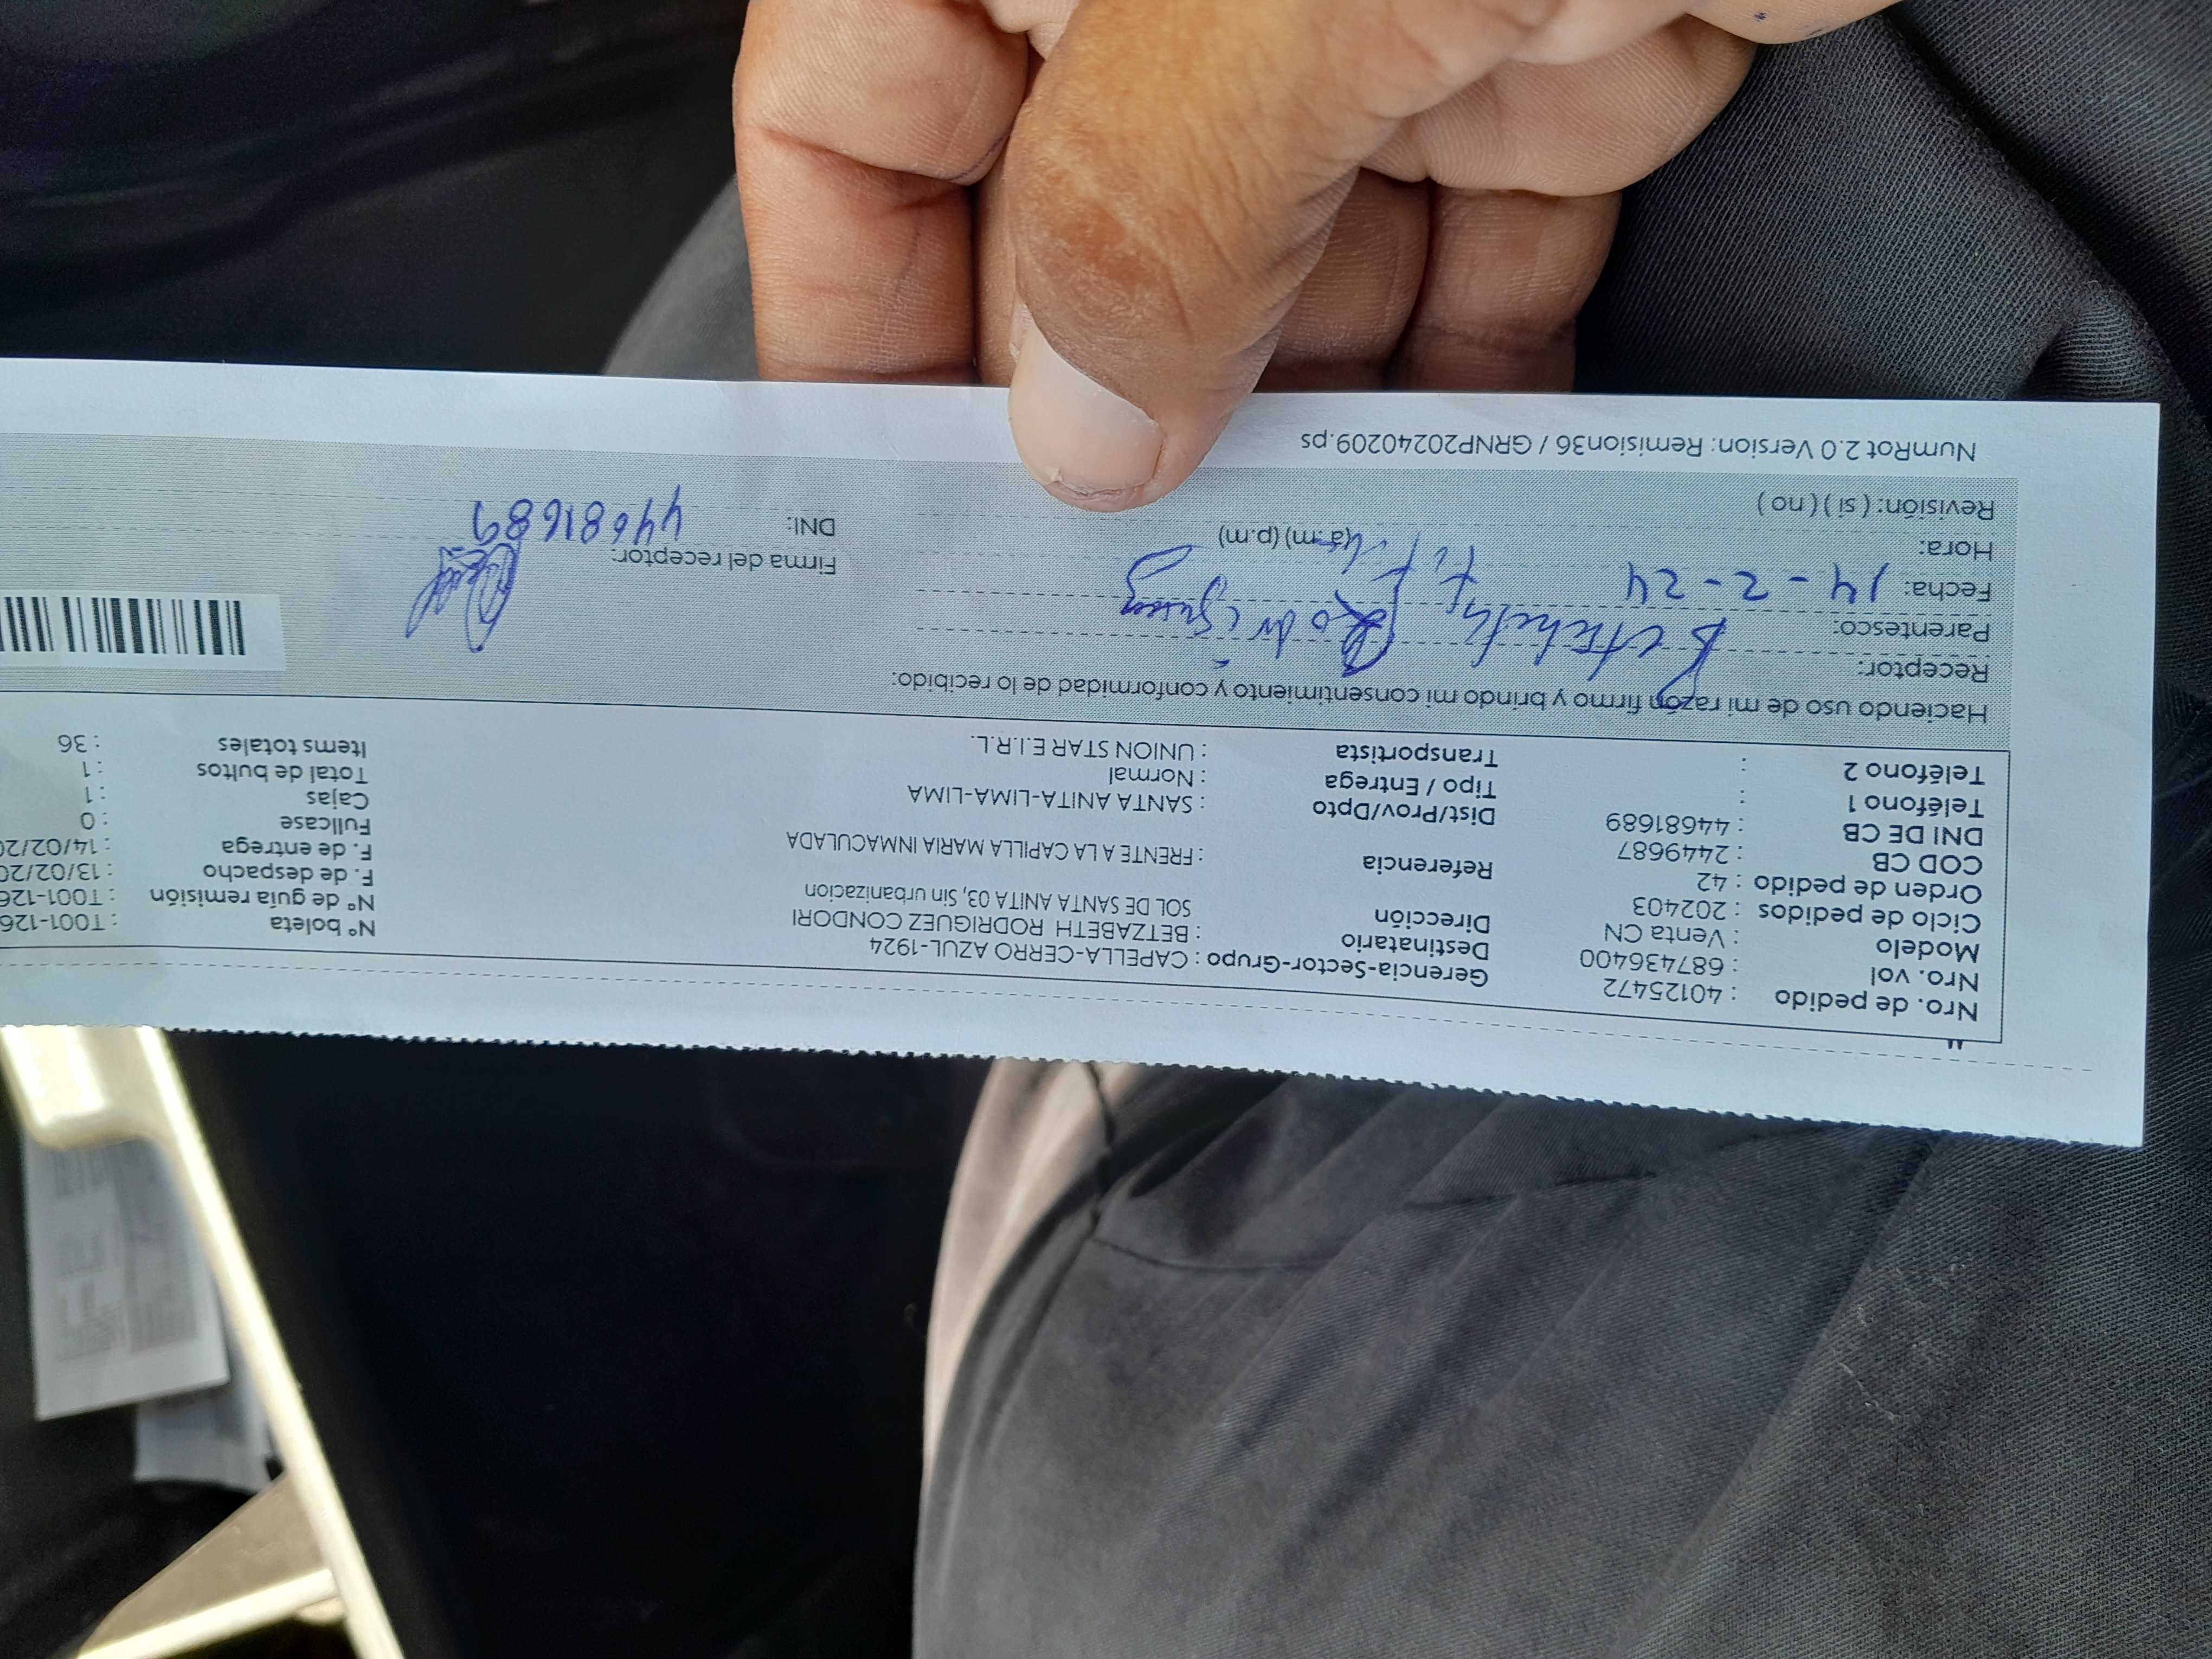 Nro. de pedido : 40125472
Nro. vol : 687436400
Modelo : Venta CN
Ciclo de pedidos : 202403
Orden de pedido : 42
COD CB : 2449687
DNI DE CB : 44681689
Teléfono 1 :
Teléfono 2 :
Gerencia-Sector-Grupo : CAPELLA-CERRO AZUL-1924
Destinatario : BETZABETH RODRIGUEZ CONDORI
Dirección SOL DE SANTA ANITA 03, Sin urbanizacion
Referencia : FRENTE A LA CAPILLA MARIA INMACULADA
Dist/Prov/Dpto : SANTA ANITA-LIMA-LIMA
Tipo / Entrega : Normal
Transportista : UNION STAR E.I.R.L.
Nº boleta : T001-126
Nº de guía remisión : T001-126
F. de despacho : 13/02/20
F. de entrega : 14/02/20
Fullcase : 0
Cajas : 1
Total de bultos : 1
Items totales : 36
Haciendo uso de mi razón firmo y brindo mi consentimiento y conformidad de lo recibido:
Receptor:
Parentesco: Rodriguez
Fecha: 14-2-24
Hora: (a.m) (p.m)
Revisión: ( si ) ( no )
Firma del receptor:
DNI: 44681689
NumRot 2.0 Version: Remision36 / GRNP20240209.ps